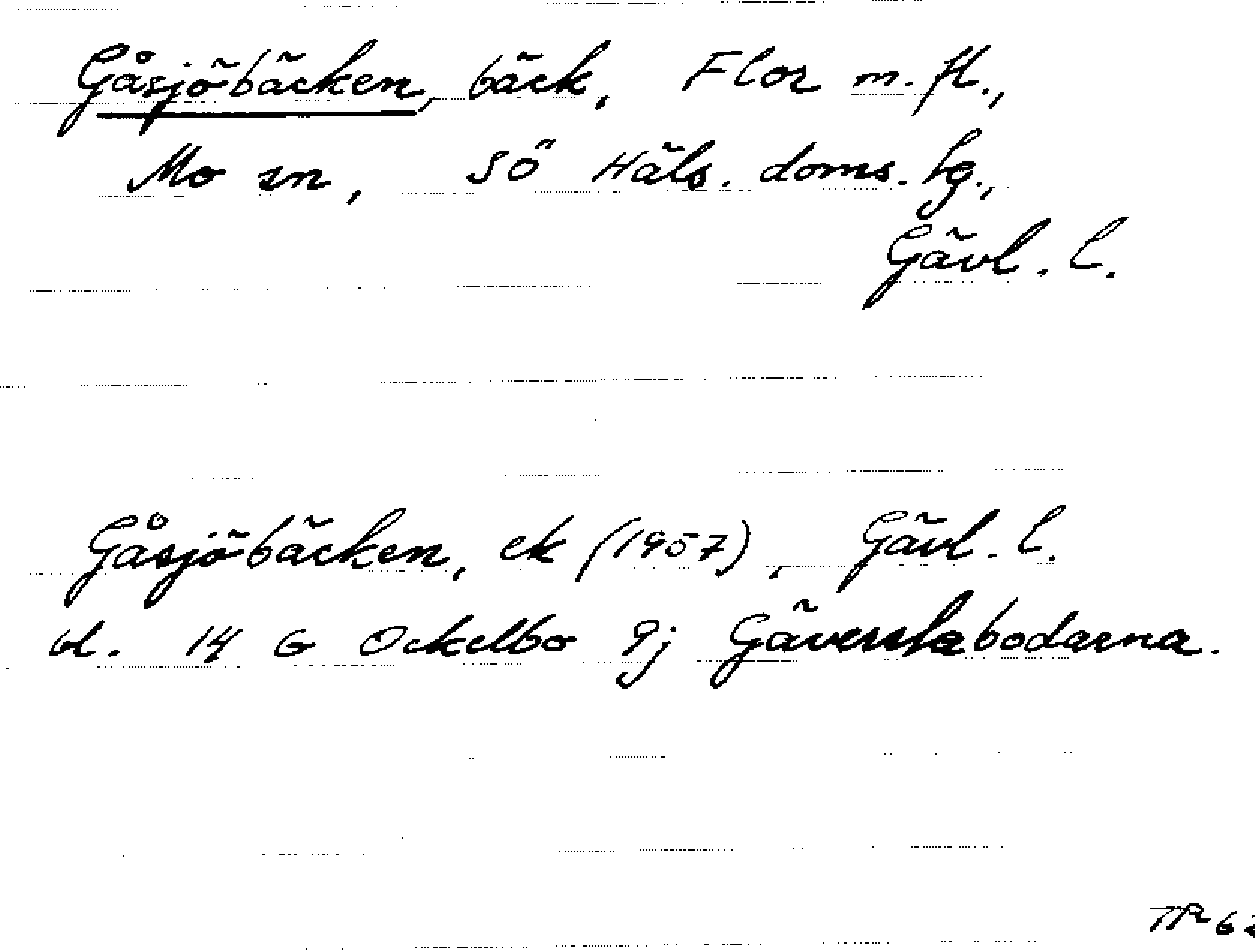 Gåsjöbäcken, bäck, Flor m. fl.,
Mo sn, SÖ Häls. doms. tg.,
Gävl. l.
Gåsjöbäcken, ek (1957), Gävl. l.
bl. 14 G Ockelbo 9j Gäverslabodarna.